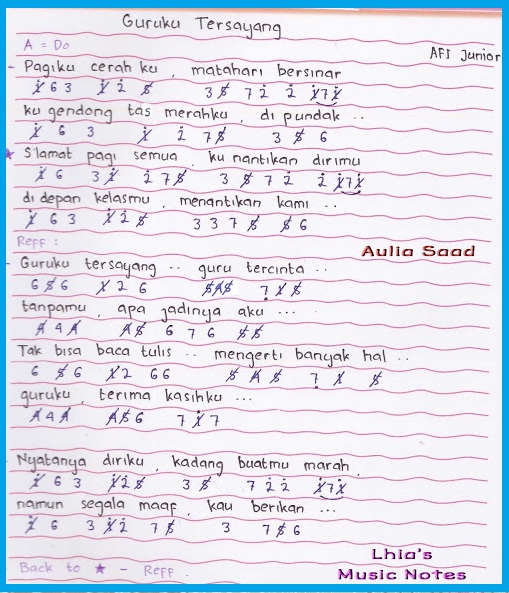 Guruku Tersayang
A = Do
AFI Junior
- Pagiku cerah ku , matahari bersinar
1̸̇ 6 3 1̸̇ 2̇ 5̸ 3 5̸ 7 2̇ 2̇ 1̸̇71̸̇
ku gendong tas merahku , di pundak ..
1̸̇ 6 3 1̸̇ 2̇ 7 5̸ 3 5̸ 6
★ S'lamat pagi semua , ku nantikan dirimu
1̸̇ 6 3 1̸̇ 2̇ 7 5̸ 3 5̸ 7 2̇ 2̇ 1̸̇71̸̇
di depan kelasmu , menantikan kami ..
1̸̇ 6 3 1̸̇ 2̇ 5̸ 3 3 7 5̸ 5̸ 6
Reff :
Aulia Saad
- Guruku tersayang .. guru tercinta ..
6 5̸ 6 1̸ 2 6 5̸4̸5̸ 7̣ 1̸ 5̸
tanpamu , apa jadinya aku ...
4̸ 4 4̸ 4̸5̸ 6 7 6 5̸5̸
Tak bisa baca tulis .. mengerti banyak hal ..
6 5̸ 6 1̸2 6 6 5̸ 4̸ 5̸ 7̣ 1̸ 5̸
guruku , terima kasihku ...
4̸ 4 4̸ 4̸5̸6 7 1̸̇ 7
- Nyatanya diriku , kadang buatmu marah ,
1̸̇ 6 3 1̸̇2̇5̸ 3 5̸ 7 2̇ 2̇ 1̸̇71̸̇
namun segala maaf , kau berikan ...
1̸̇ 6 3 1̸̇ 2̇ 7 5̸ 3 7 5̸ 6
Lhia's
Back to ★ - Reff .
Music Notes